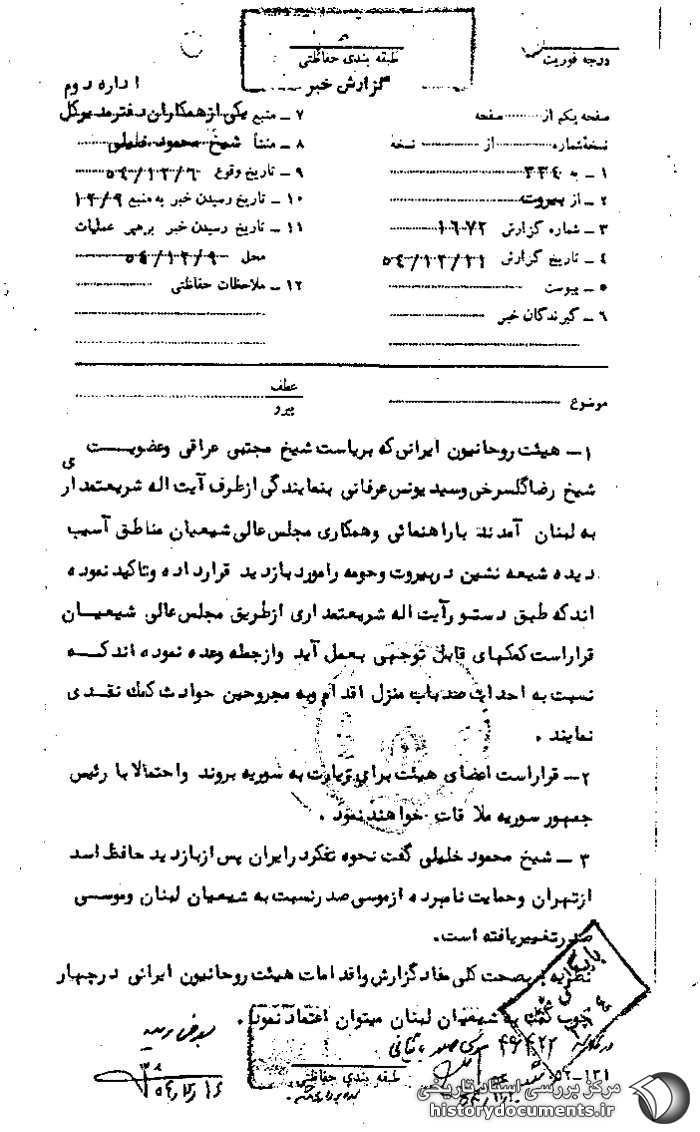 درجه فوریت
طبقه بندی حفاظتی
گزارش خبر
اداره دوم
صفحه یکم از ........ صفحه
نسخه شماره ........ از ........ نسخه
۱ – به ۳۳۴
۲ – از بیروت
۳ – شماره گزارش ۱۶۷۲
۴ – تاریخ گزارش ۵۴/۱۲/۱۱
۵ – پیوست
۶ – گیرندگان خبر
۷ – منبع یکی از همکاران دفتر مدیوکل
۸ – منشأ شیخ محمود خلیلی
۹ – تاریخ وقوع ۵۴/۱۲/۶
۱۰ – تاریخ رسیدن خبر به منبع ۱۲/۹
۱۱ – تاریخ رسیدن خبر برهبر عملیات
محل ۵۴/۱۲/۹
۱۲ – ملاحظات حفاظتی
موضوع
عطف
پیرو
۱– هیئت روحانیون ایرانی که بریاست شیخ مجتبی عراقی وعضویت
شیخ رضا گلسرخی وسید یونس عرفانی بنمایندگی ازطرف آیت اله شریعتمداری
به لبنان آمدند باراهنمائی وهمکاری مجلس عالی شیعیان مناطق آسیب
دیده شیعه نشین دربیروت وحومه رامورد بازدید قرارداده وتاکید نموده
اند که طبق دستور آیت اله شریعتمداری ازطریق مجلس عالی شیعیان
قراراست کمکهای قابل توجهی بعمل آید وازجمله وعده نموده اند کـه
نسبت به احداث صد باب منزل اقدام وبه مجروحین حوادث کمک نقدی
نمایند .
۲– قراراست اعضای هیئت برای زیارت به سوریه بروند واحتمالا با رئیس
جمهور سوریه ملاقات خواهند نمود .
۳ – شیخ محمود خلیلی گفت نحوه تفکر درایران پس ازبازدید حافظ اسد
ازتهران وحمایت نامبرده ازموسی صدر نسبت به شیعیان لبنان وموسی
صدر تغییر یافته است.
نظریه : بصحت کلی مفاد گزارش واقدامات هیئت روحانیون ایرانی درچهار
چوب کمک به شیعیان لبنان میتوان اعتماد نمود .
بایگانی
۴۹۶۲۲
طبقه بندی حفاظتی
۵۲–۱۳۱
مرکز بررسی اسناد تاریخی
historydocuments.ir